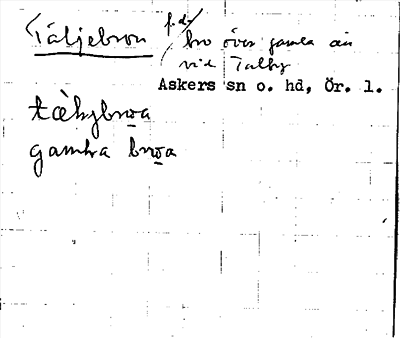 Täljebron f.d.
bro över gamla ån
vid Talby
Askers sn o. hd, Ör. l.
gamla bro̲a